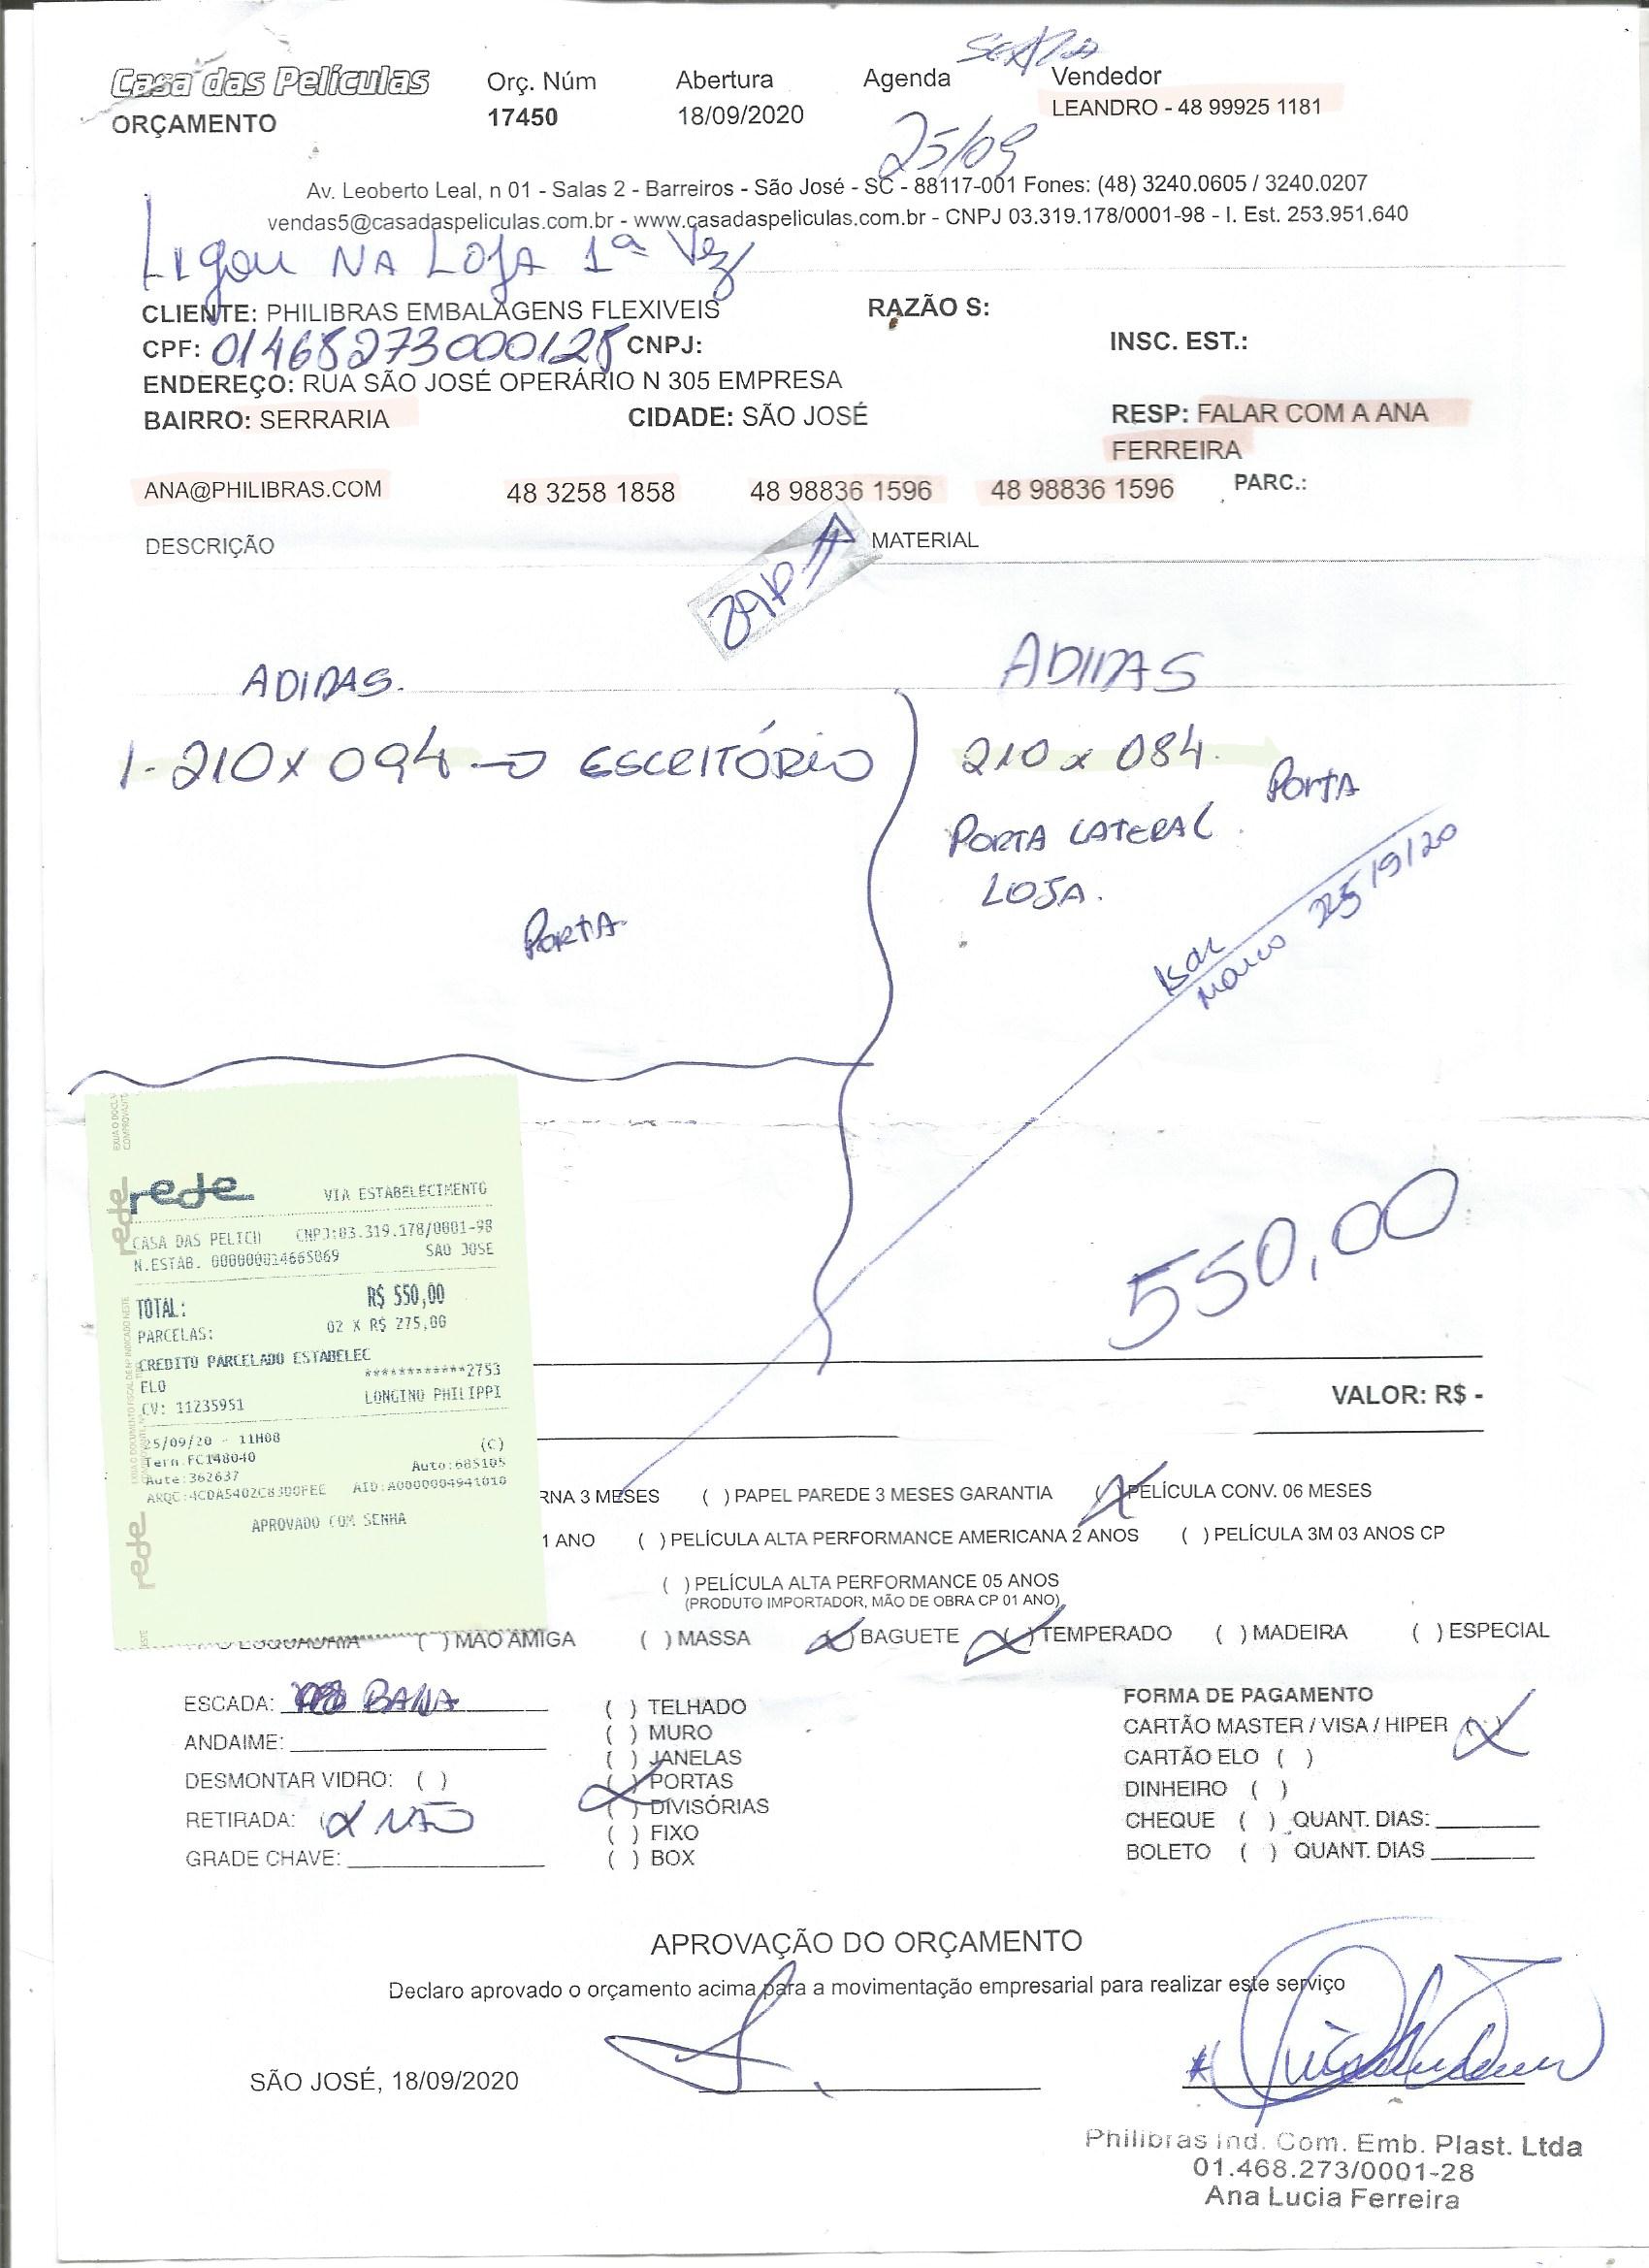 Casa das Películas
ORÇAMENTO
Orç. Núm
17450
Abertura
18/09/2020
Agenda
SEXTA
25/09
Vendedor
LEANDRO - 48 99925 1181
Av. Leoberto Leal, n 01 - Salas 2 - Barreiros - São José - SC - 88117-001 Fones: (48) 3240.0605 / 3240.0207
vendas5@casadaspeliculas.com.br - www.casadaspeliculas.com.br - CNPJ 03.319.178/0001-98 - I. Est. 253.951.640
LIgou NA LOJA 1ª Vez
CLIENTE: PHILIBRAS EMBALAGENS FLEXIVEIS RAZÃO S:
CPF: 01468273000128 CNPJ: INSC. EST.:
ENDEREÇO: RUA SÃO JOSÉ OPERÁRIO N 305 EMPRESA
BAIRRO: SERRARIA CIDADE: SÃO JOSÉ RESP: FALAR COM A ANA
FERREIRA
ANA@PHILIBRAS.COM 48 3258 1858 48 98836 1596 48 98836 1596 PARC.:
DESCRIÇÃO MATERIAL
ADIDAS. ADIDAS
1-210x094 → ESCRITÓRIO 210 x 084.
PORTA
PORTA LATERAL
LOJA.
PORTA
Isac
Marco 25/9/20
550,00
rede
VIA ESTABELECIMENTO
CASA DAS PELICU CNPJ:03.319.178/0001-98
N.ESTAB. 000000014665069 SAO JOSE
TOTAL: R$ 550,00
PARCELAS: 02 X R$ 275,00
CREDITO PARCELADO ESTABELEC
ELO ***********2753
CV: 11235951 LONGINO PHILIPPI
25/09/20 - 11H08 (C)
Term.FC148040 Auto:685105
Aute:362637
ARQC:4CDA5402C83D0FEE AID:A0000004941010
APROVADO COM SENHA
rede
rede
VALOR: R$ -
RNA 3 MESES ( ) PAPEL PAREDE 3 MESES GARANTIA (X) PELÍCULA CONV. 06 MESES
1 ANO ( ) PELÍCULA ALTA PERFORMANCE AMERICANA 2 ANOS ( ) PELÍCULA 3M 03 ANOS CP
( ) PELÍCULA ALTA PERFORMANCE 05 ANOS
(PRODUTO IMPORTADOR, MÃO DE OBRA CP 01 ANO)
( ) MÃO AMIGA ( ) MASSA (X) BAGUETE (X) TEMPERADO ( ) MADEIRA ( ) ESPECIAL
ESCADA:
ANDAIME:
DESMONTAR VIDRO: ( )
RETIRADA: (X NÃO
GRADE CHAVE:
( ) TELHADO
( ) MURO
( ) JANELAS
(X) PORTAS
( ) DIVISÓRIAS
( ) FIXO
( ) BOX
FORMA DE PAGAMENTO
CARTÃO MASTER / VISA / HIPER (X)
CARTÃO ELO ( )
DINHEIRO ( )
CHEQUE ( ) QUANT. DIAS:
BOLETO ( ) QUANT. DIAS
APROVAÇÃO DO ORÇAMENTO
Declaro aprovado o orçamento acima para a movimentação empresarial para realizar este serviço
SÃO JOSÉ, 18/09/2020
Philibras Ind. Com. Emb. Plast. Ltda
01.468.273/0001-28
Ana Lucia Ferreira